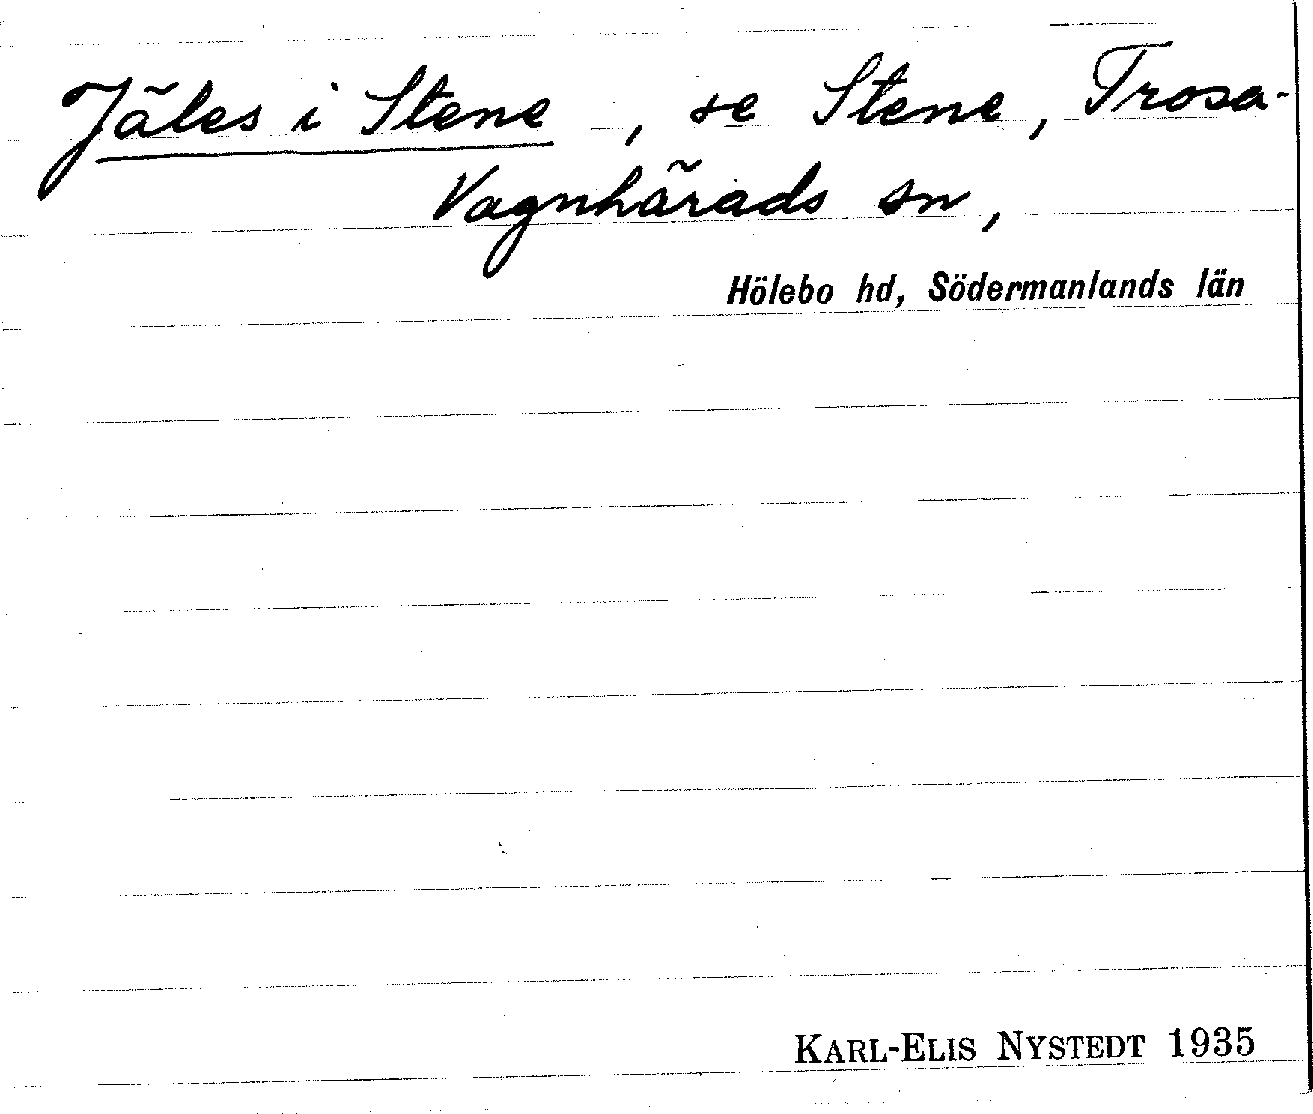 Jäles i Stene, se Stene, Trosa-
Vagnhärads sn,
Hölebo hd, Södermanlands län
KARL-ELIS NYSTEDT 1935